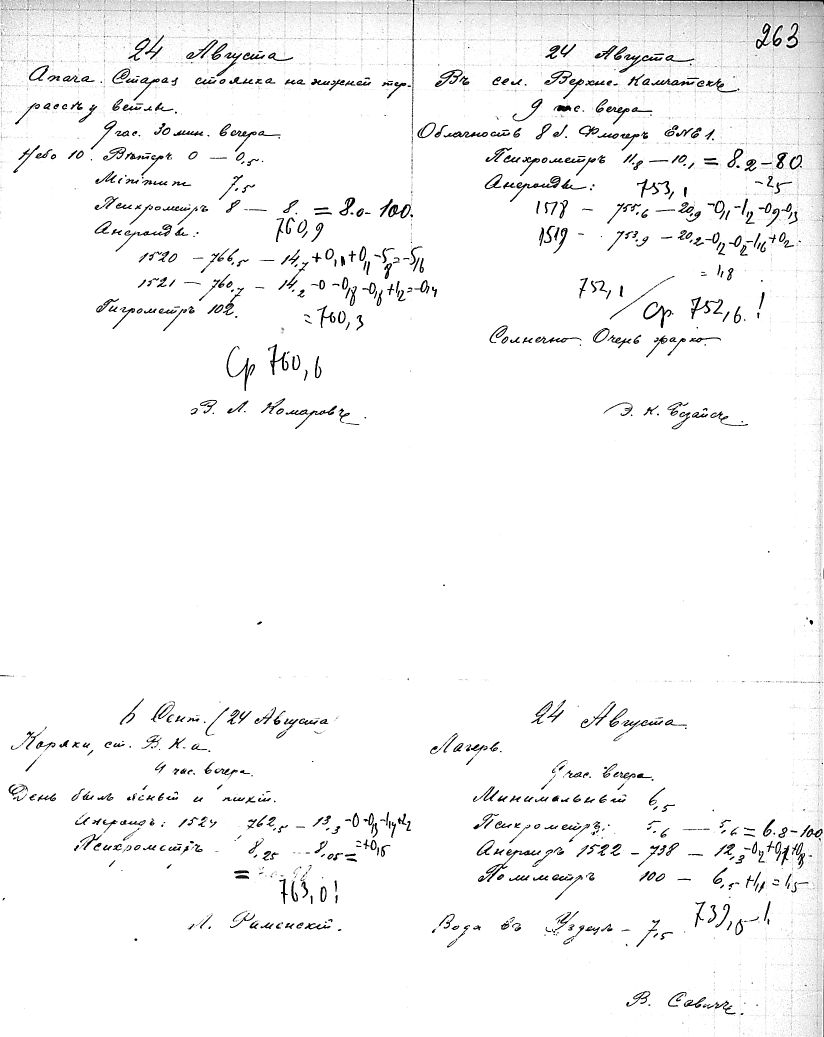 263
24 Августа
Апача. Старая стоянка на нижней тер-
рассѣ у ветлы.
9 час. 30 мин. вечера.
Небо 10. Вѣтеръ 0 — 0,5.
Minimum 7,5
Психрометръ 8 — 8. = 8.0 - 100.
Анероиды: 760,9
1520 — 766,5 — 14,7 +0,1 +0,1 -5,8 = -5,6
1521 — 760,7 — 14,2 -0 -0,8 -0,8 +1,2 = -0,4
Гигрометръ 102. = 760,3
Ср 760,6
В. Л. Комаровъ.
24 Августа
Въ сел. Верхне-Камчатскѣ
9 час. вечера.
Облачность 8 Флюгеръ ENE 1.
Психрометръ 11,8 — 10,1 = 8.2 - 80.
Анероиды: 753,1 -2,5
1518 — 755,6 — 20,9 -0,1 -1,2 -0,9 -0,3
1519 — 753,9 — 20,2 -0,2 -0,2 -1,6 +0,2
= 1,8
752,1
Ср. 752,6!
Солнечно. Очень жарко.
Э. К. Безайсъ.
6 Сент. (24 Августа)
Коряки, ст. В. К. а.
9 час. вечера.
День былъ ясный и тихій.
Анероидъ: 1524 762,5 — 13,3 -0 -0,3 -1,4 +2,2
Психрометръ - 8,25 — 8,05 = = +0,5
=
763,0!
Л. Раменскій.
24 Августа
Лагерь.
9 час. вечера.
Минимальный 6,5
Психрометръ: 5,6 — 5,6 = 6.8 - 100
Анероидъ 1522 — 738 — 12,3 -0,2
Полиметръ 100 — 6,5 +1,1 = 1,5
739,5
Вода въ - 7,5
В. Савичъ.